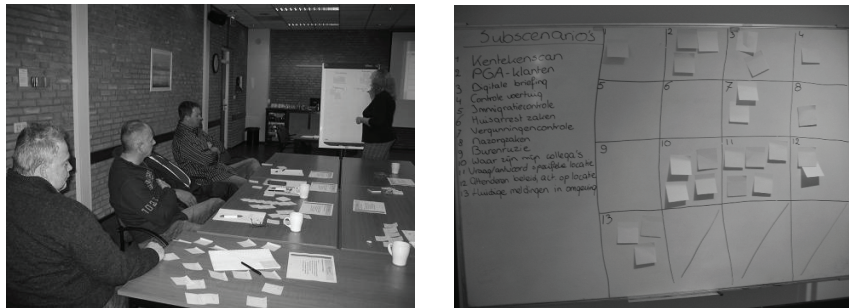 Subscenario's
1 Kentekenscan
2 PGA-klanten
3 Digitale briefing
4 Controle voertuig
5 Immigratiecontrole
6 Huisarrest zaken
7 Vergunningencontrole
8 Nazorgtaken
9 Burenruzie
10 Waar zijn mijn collega's
11 Vraag/antwoord specifieke locatie
12 Attenderen beleid, act op locatie
13 Huidige meldingen in omgeving
1 2 3 4
5 6 7 8
9 10 11 12
13